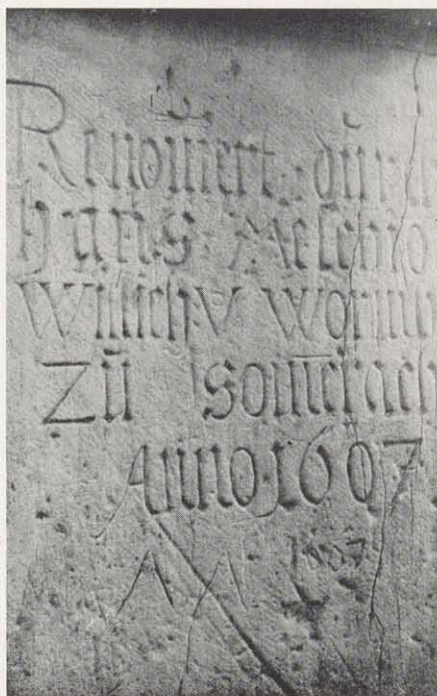 Renouiert. dŭrch
hans Melchio
Willich. V Wormb
Zŭ som̄erach
Anno. 1607